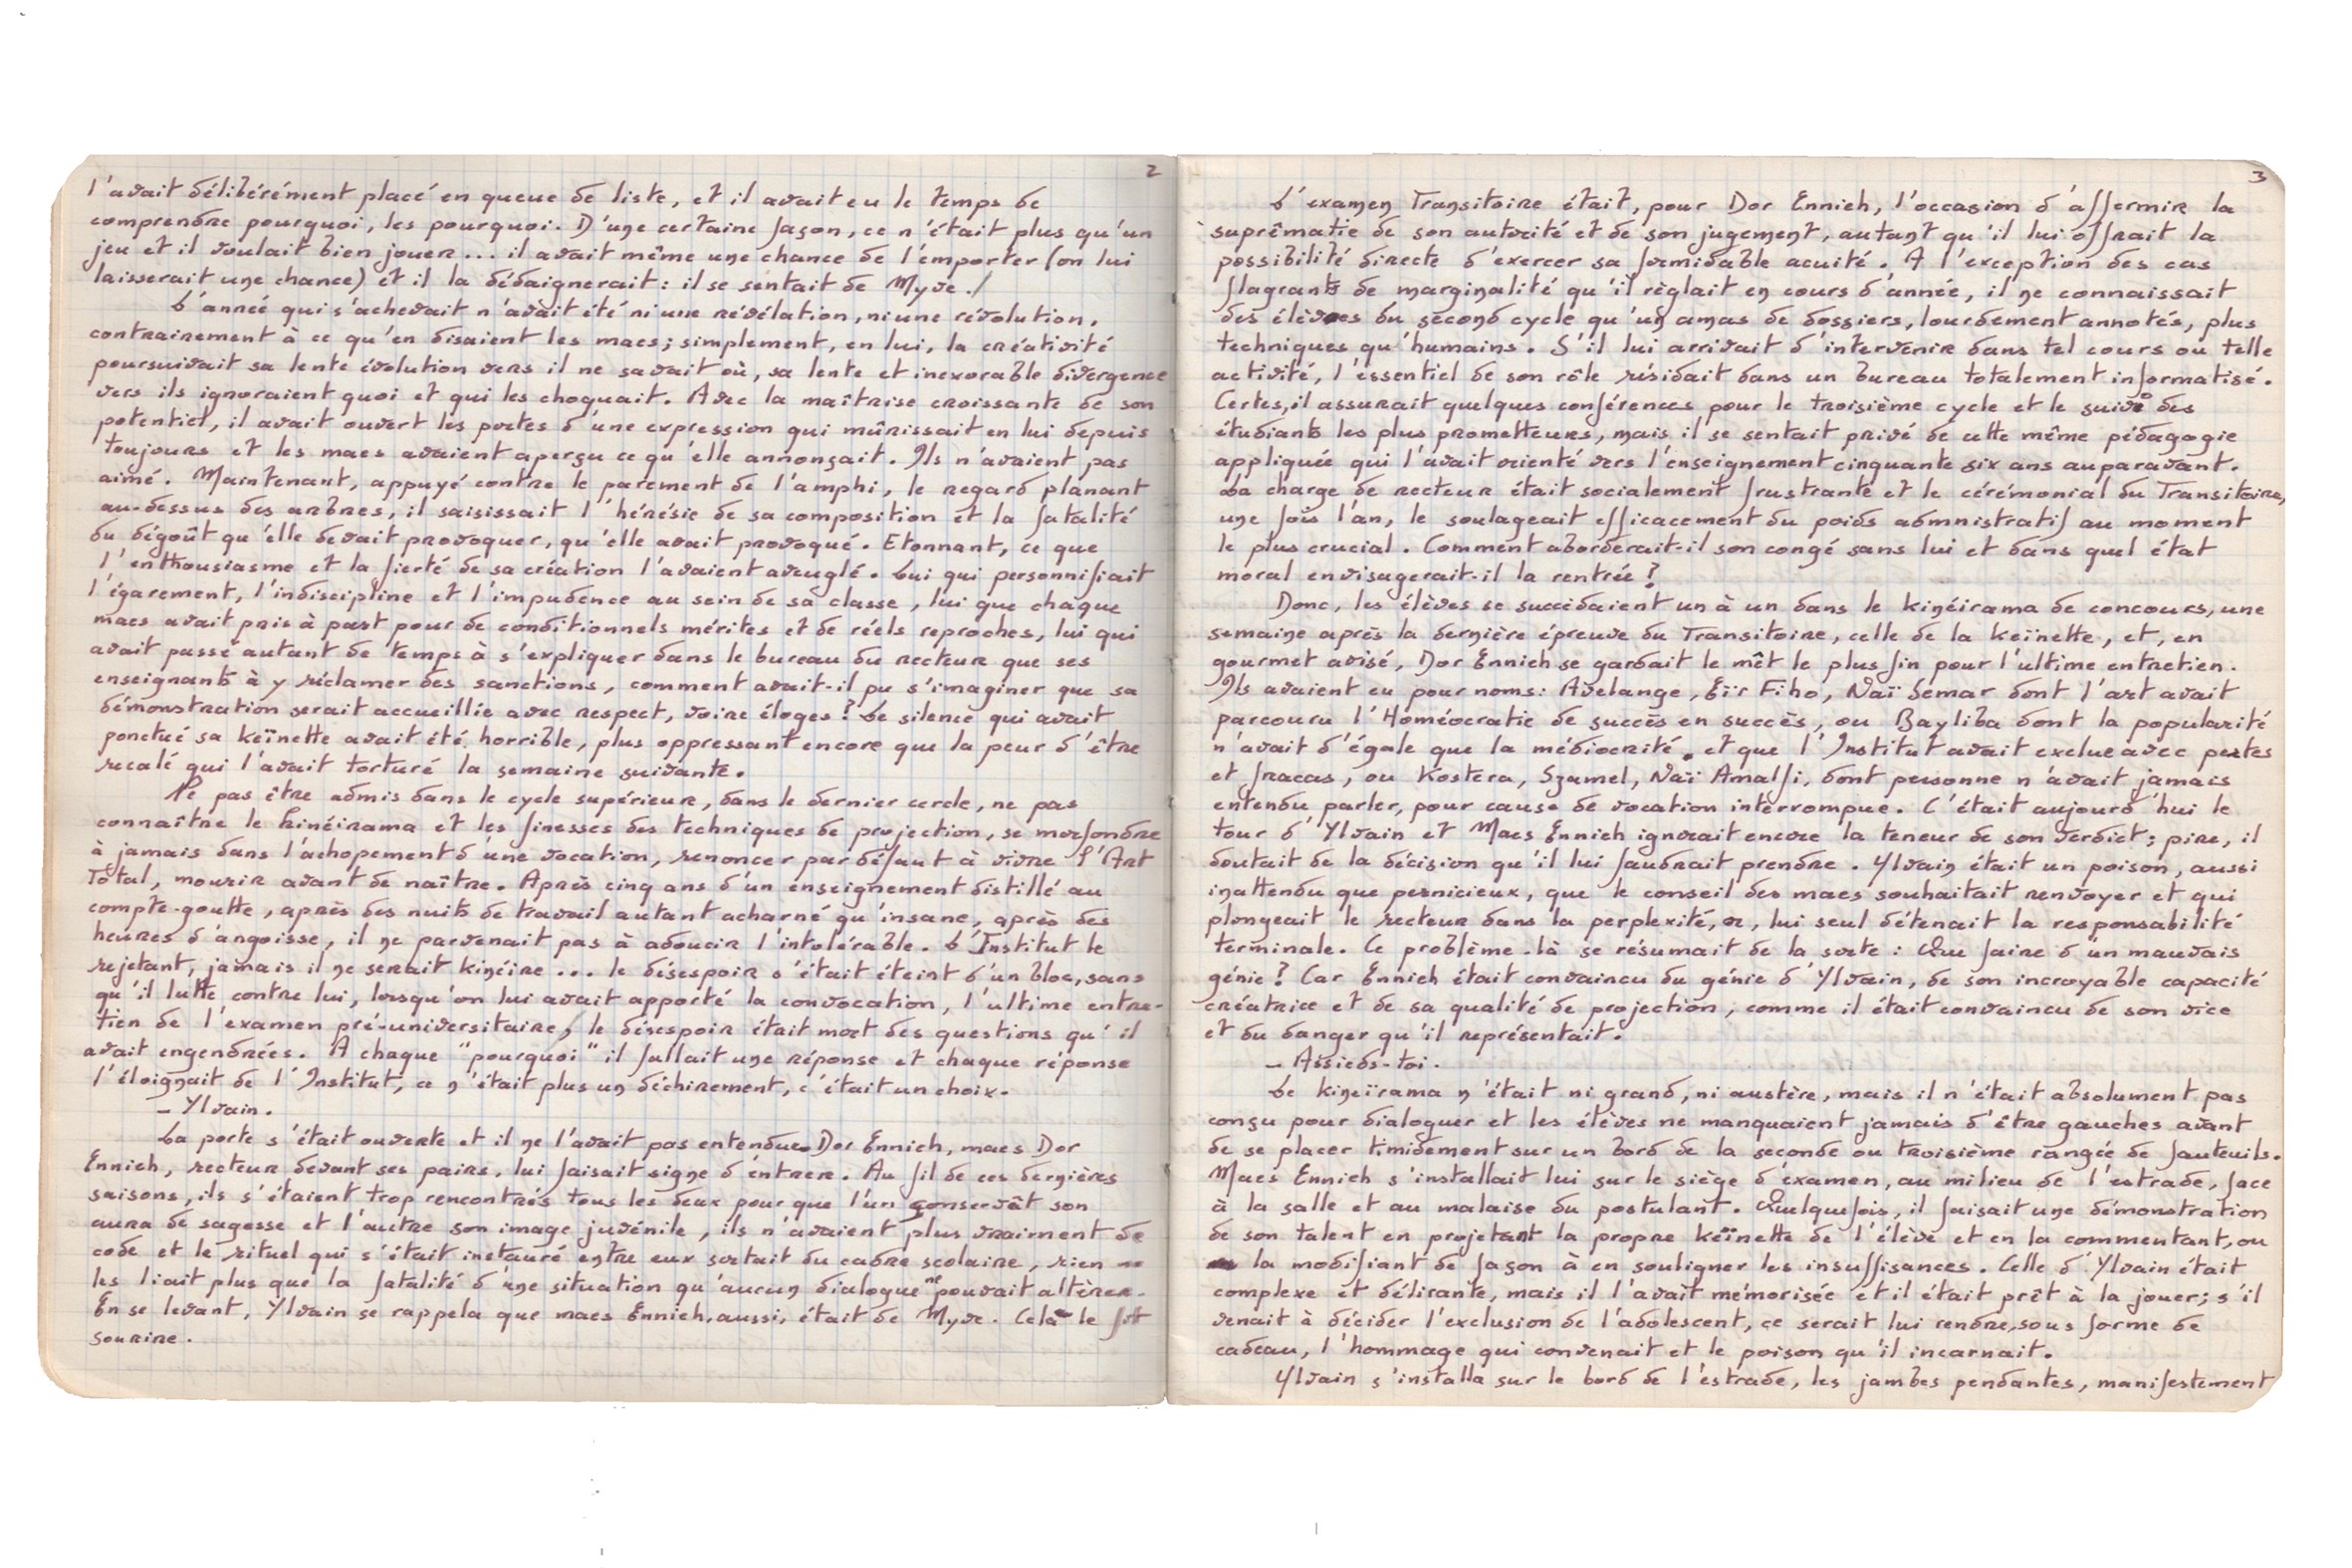 2
l'avait délibérément placé en queue de liste, et il avait eu le temps de
comprendre pourquoi, les pourquoi. D'une certaine façon, ce n'était plus qu'un
jeu et il voulait bien jouer... il avait même une chance de l'emporter (on lui
laisserait une chance) et il la dédaignerait : il se sentait de Myve./
L'année qui s'achevait n'avait été ni une révélation, ni une révolution,
contrairement à ce qu'en disaient les maes ; simplement, en lui, la créativité
poursuivait sa lente évolution vers il ne savait où, sa lente et inexorable divergence
vers ils ignoraient quoi et qui les choquait. Avec la maîtrise croissante de son
potentiel, il avait ouvert les portes d'une expression qui mûrissait en lui depuis
toujours et les maes avaient aperçu ce qu'elle annonçait. Ils n'avaient pas
aimé. Maintenant, appuyé contre le parement de l'amphi, le regard planant
au-dessus des arbres, il saisissait l'hérésie de sa composition et la fatalité
du dégoût qu'elle devait provoquer, qu'elle avait provoqué. Etonnant, ce que
l'enthousiasme et la fierté de sa création l'avaient aveuglé. Lui qui personnifiait
l'égarement, l'indiscipline et l'impudence au sein de sa classe, lui que chaque
maes avait pris à part pour de conditionnels mérites et de réels reproches, lui qui
avait passé autant de temps à s'expliquer dans le bureau du recteur que ses
enseignants à y réclamer des sanctions, comment avait-il pu s'imaginer que sa
démonstration serait accueillie avec respect, voire éloges ? Le silence qui avait
ponctué sa keïnette avait été horrible, plus oppressant encore que la peur d'être
recalé qui l'avait torturé la semaine suivante.
Ne pas être admis dans le cycle supérieur, dans le dernier cercle, ne pas
connaître le kinéirama et les finesses des techniques de projection, se morfondre
à jamais dans l'achopement d'une vocation, renoncer par défaut à vivre l'Art
Total, mourir avant de naître. Après cinq ans d'un enseignement distillé au
compte-goutte, après des nuits de travail autant acharné qu'insane, après des
heures d'angoisse, il ne parvenait pas à adoucir l'intolérable. L'Institut le
rejetant, jamais il ne serait kinéire... le désespoir s'était éteint d'un bloc, sans
qu'il lutte contre lui, lorsqu'on lui avait apporté la convocation, l'ultime entre-
tien de l'examen pré-universitaire, le désespoir était mort des questions qu'il
avait engendrées. A chaque "pourquoi" il fallait une réponse et chaque réponse
l'éloignait de l'Institut, ce n'était plus un déchirement, c'était un choix.
- Ylvain.
La porte s'était ouverte et il ne l'avait pas entendue. Dor Ennieh, maes Dor
Ennieh, recteur devant ses pairs, lui faisait signe d'entrer. Au fil de ces dernières
saisons, ils s'étaient trop rencontrés tous les deux pour que l'un conservât son
aura de sagesse et l'autre son image juvénile, ils n'avaient plus vraiment de
code et le rituel qui s'était instauré entre eux sortait du cadre scolaire, rien
les liait plus que la fatalité d'une situation qu'aucun dialogue ne pouvait altérer.
En se levant, Ylvain se rappela que maes Ennieh, aussi, était de Myve. Cela le fit
sourire.
3
L'examen Transitoire était, pour Dor Ennieh, l'occasion d'affermir la
suprêmatie de son autorité et de son jugement, autant qu'il lui offrait la
possibilité directe d'exercer sa formidable acuité. A l'exception des cas
flagrants de marginalité qu'il règlait en cours d'année, il ne connaissait
des élèves du second cycle qu'un amas de dossiers, lourdement annotés, plus
techniques qu'humains. S'il lui arrivait d'intervenir dans tel cours ou telle
activité, l'essentiel de son rôle résidait dans un bureau totalement informatisé.
Certes, il assurait quelques conférences pour le troisième cycle et le suivi des
étudiants les plus prometteurs, mais il se sentait privé de cette même pédagogie
appliquée qui l'avait orienté vers l'enseignement cinquante six ans auparavant.
La charge de recteur était socialement frustrante et le cérémonial du Transitoire,
une fois l'an, le soulageait efficacement du poids admnistratif au moment
le plus crucial. Comment aborderait-il son congé sans lui et dans quel état
moral envisagerait-il la rentrée ?
Donc, les élèves se succédaient un à un dans le kinéirama de concours, une
semaine après la dernière épreuve du Transitoire, celle de la keïnette, et, en
gourmet avisé, Dor Ennieh se gardait le mêt le plus fin pour l'ultime entretien.
Ils avaient eu pour noms : Avelange, Eïr Fiho, Naï Semar dont l'art avait
parcouru l'Homéocratie de succès en succès, ou Bayliba dont la popularité
n'avait d'égale que la médiocrité et que l'Institut avait exclue avec pertes
et fracas, ou Kostera, Szamel, Naï Amalfi, dont personne n'avait jamais
entendu parler, pour cause de vocation interrompue. C'était aujourd'hui le
tour d'Ylvain et Maes Ennieh ignorait encore la teneur de son verdict ; pire, il
doutait de la décision qu'il lui faudrait prendre. Ylvain était un poison, aussi
inattendu que pernicieux, que le conseil des maes souhaitait renvoyer et qui
plongeait le recteur dans la perplexité, or, lui seul détenait la responsabilité
terminale. Ce problème-là se résumait de la sorte : Que faire d'un mauvais
génie ? Car Ennieh était convaincu du génie d'Ylvain, de son incroyable capacité
créatrice et de sa qualité de projection, comme il était convaincu de son vice
et du danger qu'il représentait.
- Assieds-toi.
Le kineïrama n'était ni grand, ni austère, mais il n'était absolument pas
conçu pour dialoguer et les élèves ne manquaient jamais d'être gauches avant
de se placer timidement sur un bord de la seconde ou troisième rangée de fauteuils.
Maes Ennieh s'installait lui sur le siège d'examen, au milieu de l'estrade, face
à la salle et au malaise du postulant. Quelquefois, il faisait une démonstration
de son talent en projetant la propre keïnette de l'élève et en la commentant, ou
la modifiant de façon à en souligner les insuffisances. Celle d'Ylvain était
complexe et délirante, mais il l'avait mémorisée et il était prêt à la jouer ; s'il
venait à décider l'exclusion de l'adolescent, ce serait lui rendre, sous forme de
cadeau, l'hommage qui convenait et le poison qu'il incarnait.
Ylvain s'installa sur le bord de l'estrade, les jambes pendantes, manifestement